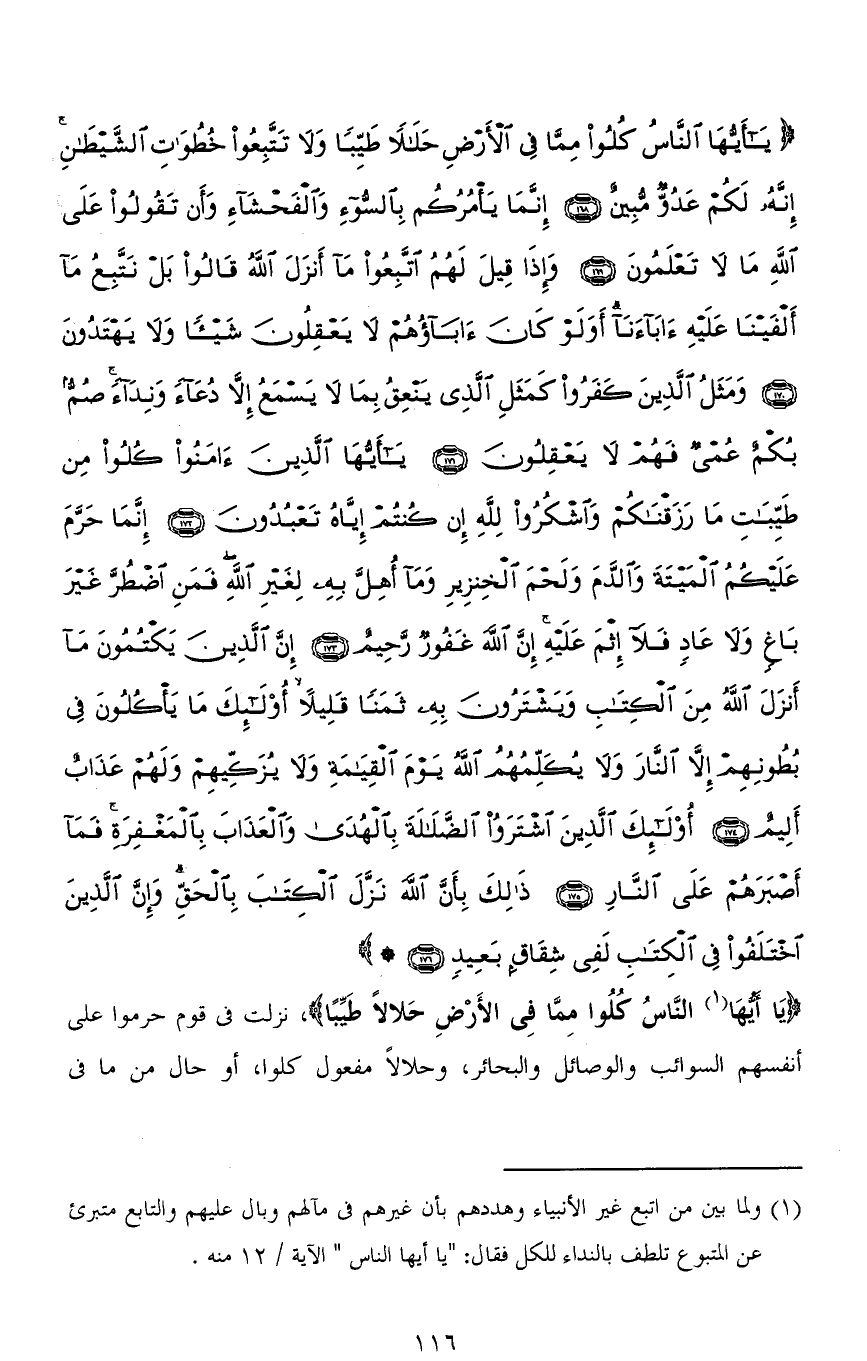 ﴿ يَـٰٓأَيُّهَا ٱلنَّاسُ كُلُوا۟ مِمَّا فِى ٱلْأَرْضِ حَلَـٰلًا طَيِّبًا وَلَا تَتَّبِعُوا۟ خُطُوَٰتِ ٱلشَّيْطَـٰنِ ۚ
إِنَّهُۥ لَكُمْ عَدُوٌّ مُّبِينٌ ١٦٨ إِنَّمَا يَأْمُرُكُم بِٱلسُّوٓءِ وَٱلْفَحْشَآءِ وَأَن تَقُولُوا۟ عَلَى
ٱللَّهِ مَا لَا تَعْلَمُونَ ١٦٩ وَإِذَا قِيلَ لَهُمُ ٱتَّبِعُوا۟ مَآ أَنزَلَ ٱللَّهُ قَالُوا۟ بَلْ نَتَّبِعُ مَآ
أَلْفَيْنَا عَلَيْهِ ءَابَآءَنَآ ۗ أَوَلَوْ كَانَ ءَابَآؤُهُمْ لَا يَعْقِلُونَ شَيْـًٔا وَلَا يَهْتَدُونَ
١٧٠ وَمَثَلُ ٱلَّذِينَ كَفَرُوا۟ كَمَثَلِ ٱلَّذِى يَنْعِقُ بِمَا لَا يَسْمَعُ إِلَّا دُعَآءً وَنِدَآءً ۚ صُمٌّۢ
بُكْمٌ عُمْىٌ فَهُمْ لَا يَعْقِلُونَ ١٧١ يَـٰٓأَيُّهَا ٱلَّذِينَ ءَامَنُوا۟ كُلُوا۟ مِن
طَيِّبَـٰتِ مَا رَزَقْنَـٰكُمْ وَٱشْكُرُوا۟ لِلَّهِ إِن كُنتُمْ إِيَّاهُ تَعْبُدُونَ ١٧٢ إِنَّمَا حَرَّمَ
عَلَيْكُمُ ٱلْمَيْتَةَ وَٱلدَّمَ وَلَحْمَ ٱلْخِنزِيرِ وَمَآ أُهِلَّ بِهِۦ لِغَيْرِ ٱللَّهِ ۖ فَمَنِ ٱضْطُرَّ غَيْرَ
بَاغٍ وَلَا عَادٍ فَلَآ إِثْمَ عَلَيْهِ ۚ إِنَّ ٱللَّهَ غَفُورٌ رَّحِيمٌ ١٧٣ إِنَّ ٱلَّذِينَ يَكْتُمُونَ مَآ
أَنزَلَ ٱللَّهُ مِنَ ٱلْكِتَـٰبِ وَيَشْتَرُونَ بِهِۦ ثَمَنًا قَلِيلًا ۙ أُو۟لَـٰٓئِكَ مَا يَأْكُلُونَ فِى
بُطُونِهِمْ إِلَّا ٱلنَّارَ وَلَا يُكَلِّمُهُمُ ٱللَّهُ يَوْمَ ٱلْقِيَـٰمَةِ وَلَا يُزَكِّيهِمْ وَلَهُمْ عَذَابٌ
أَلِيمٌ ١٧٤ أُو۟لَـٰٓئِكَ ٱلَّذِينَ ٱشْتَرَوُا۟ ٱلضَّلَـٰلَةَ بِٱلْهُدَىٰ وَٱلْعَذَابَ بِٱلْمَغْفِرَةِ ۚ فَمَآ
أَصْبَرَهُمْ عَلَى ٱلنَّارِ ١٧٥ ذَٰلِكَ بِأَنَّ ٱللَّهَ نَزَّلَ ٱلْكِتَـٰبَ بِٱلْحَقِّ ۗ وَإِنَّ ٱلَّذِينَ
ٱخْتَلَفُوا۟ فِى ٱلْكِتَـٰبِ لَفِى شِقَاقٍۭ بَعِيدٍ ١٧٦ * ﴾
﴿يَا أَيُّهَا(١) النَّاسُ كُلُوا مِمَّا فِى الأَرْضِ حَلالاً طَيِّبًا﴾، نزلت فى قوم حرموا على
أنفسهم السوائب والوصائل والبحائر، وحلالاً مفعول كلوا، أو حال من ما فى
(١) ولما بين من اتبع غير الأنبياء وهددهم بأن غيرهم فى مآلهم وبال عليهم والتابع متبرئ
عن المتبوع تلطف بالنداء للكل فقال: "يا أيها الناس " الآية / ١٢ منه .
١١٦